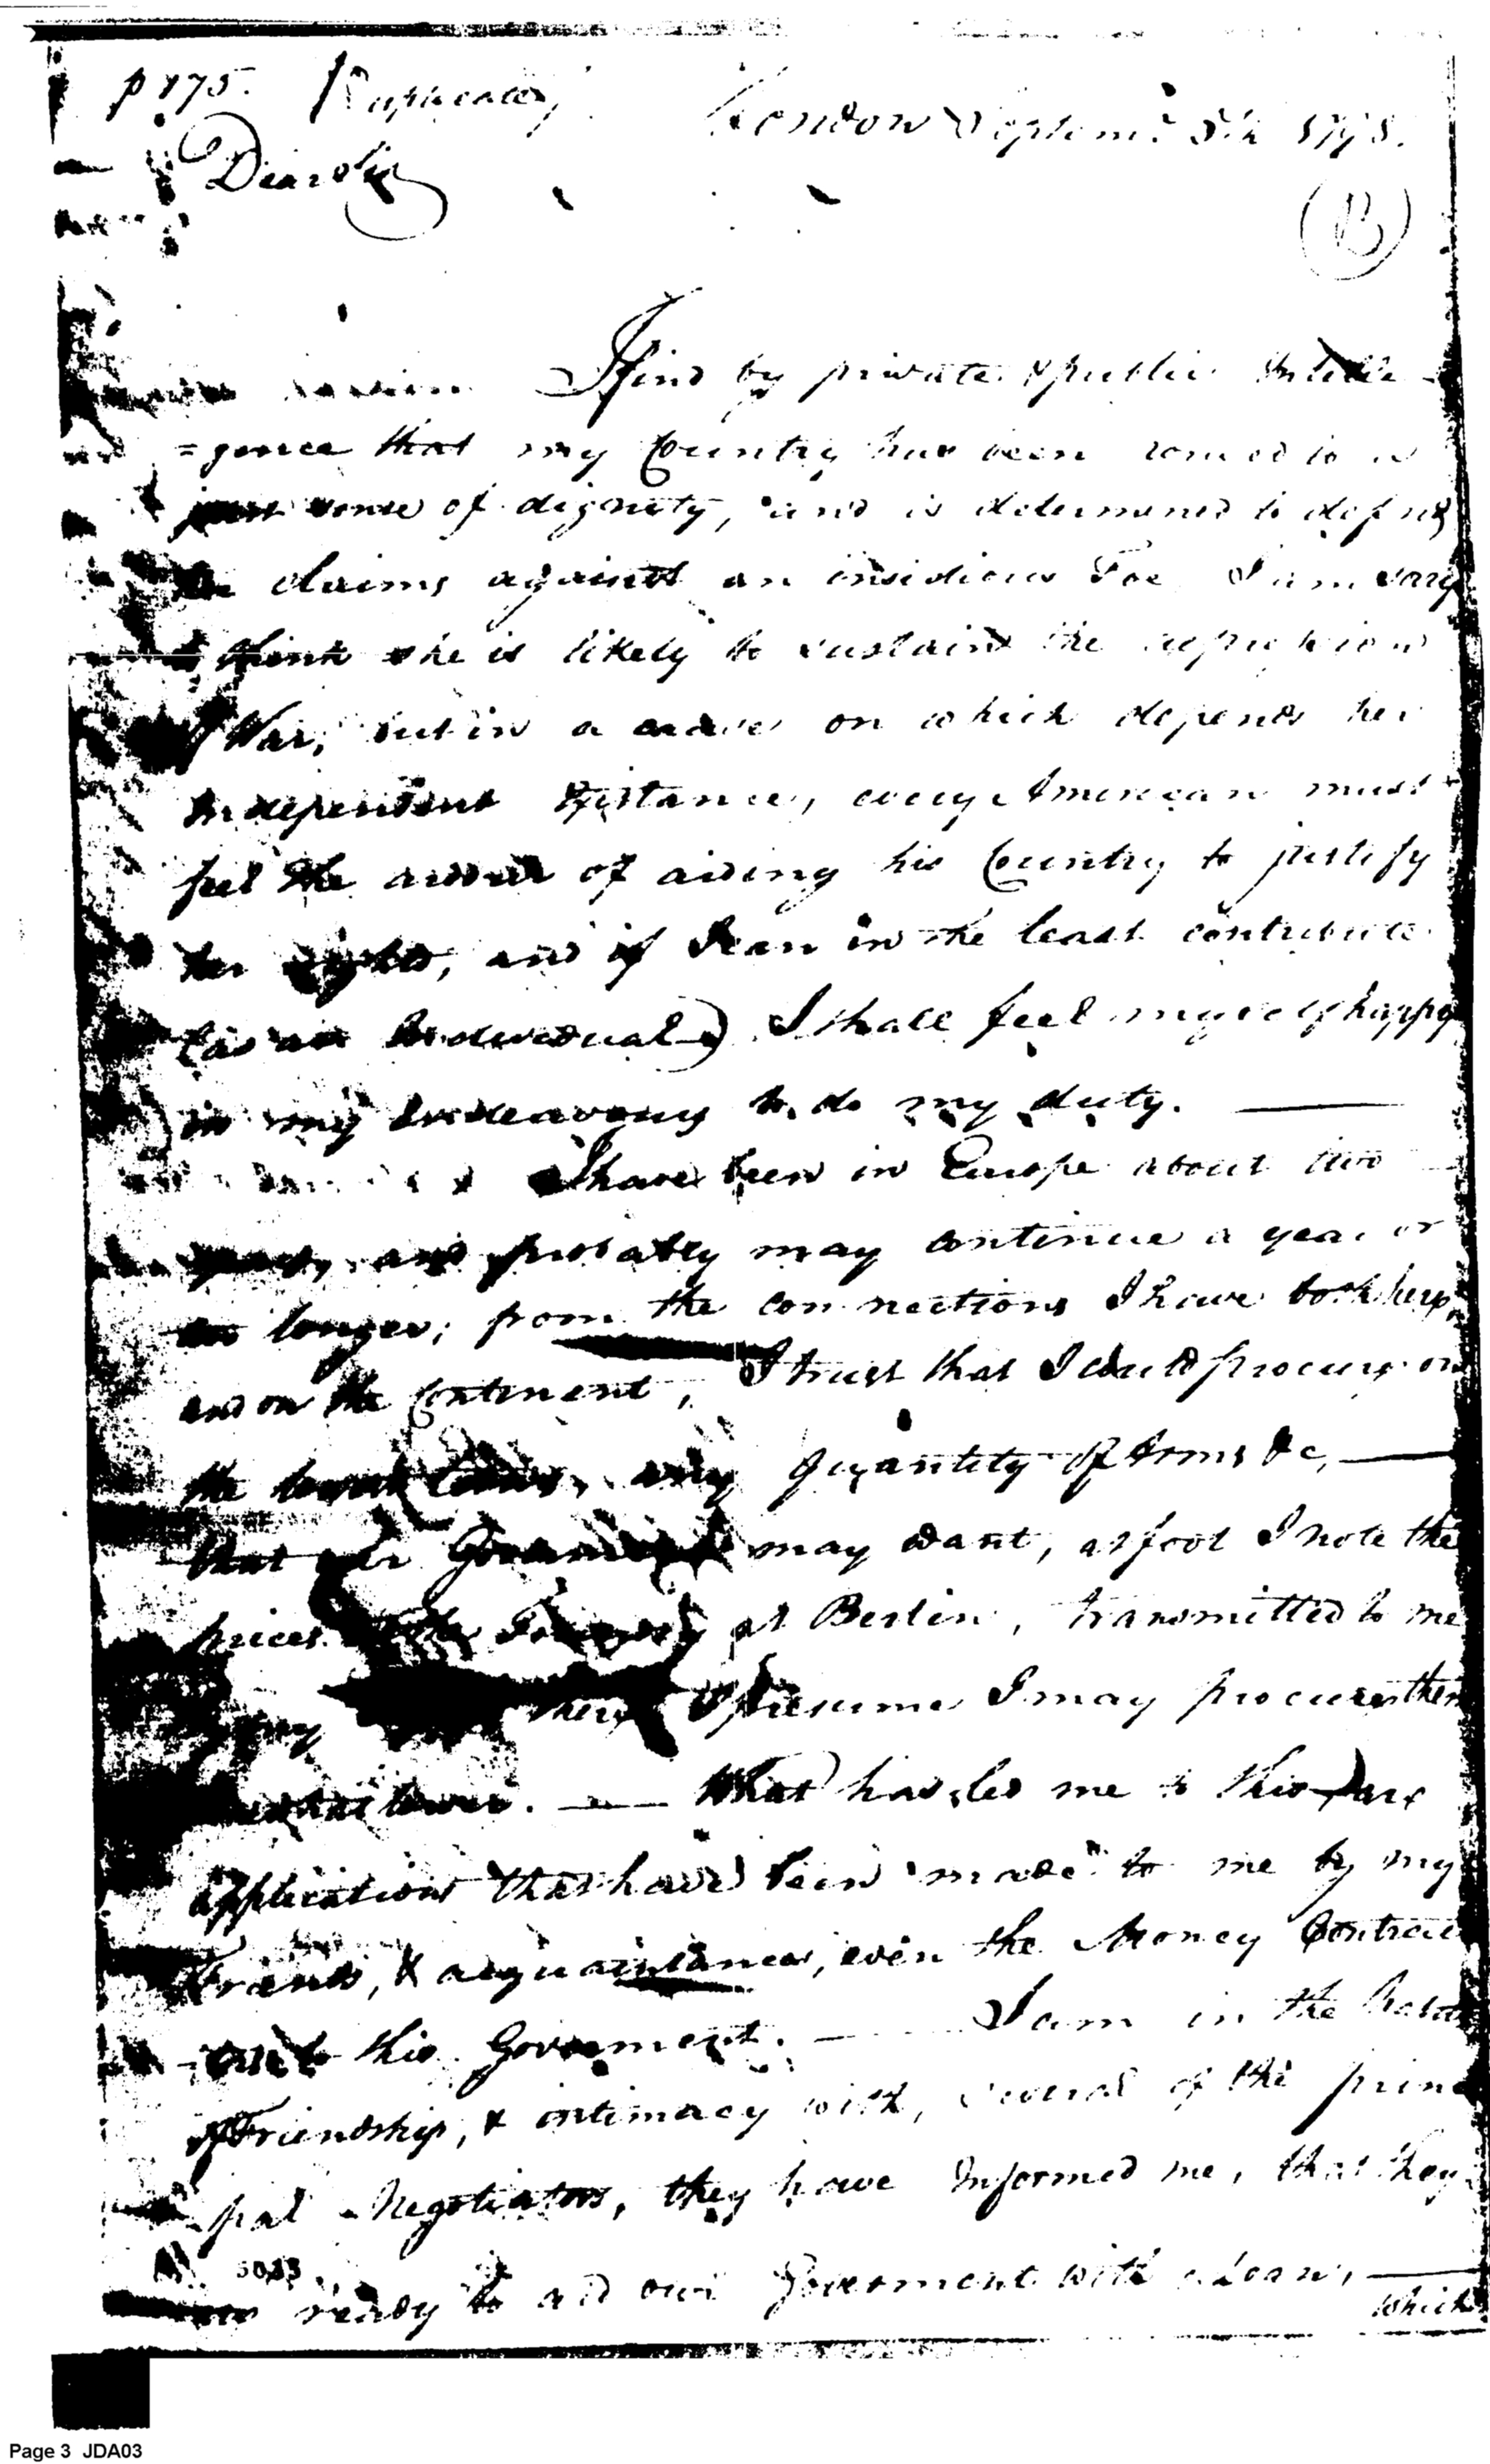 p 175. (Duplicate)
London Septem.r 5th 1798.
Dear Sir
(B)
I find by private & public Intelle
=gence that my Country has been roused to a
just sense of dignity, and is determined to defend
claims against an insidious Foe I am sorry
to think she is likely to sustain the
of War, but in a cause on which depends her
Independent Existance, every American must
feel the ardour of aiding his Country to justify
her rights, and if I can in the least contribute
(as an Individual) I shall feel myself happy
in my Endeavours to do my duty. —
I have been in Europe about two
years, and probably may continue a year or
longer; from the connections I have both here,
and on the Continent, I trust that I could procure on
the lowest terms, any Quantity of Arms &c, —
that our Government may want, at foot I note the
prices at Berlin, transmitted to me
I presume I may procure them
lower. — What has led me to this are
applications that have been made to me by my
Friends, & acquaintances, even the Money Contrac
this Goverment. — I am in the habits
of Friendship, & intimacy with, several of the princi
pal Negotiators, they have Informed me, that they
ready to aid our Goverment with a Loan, —
which
Page 3 JDA03